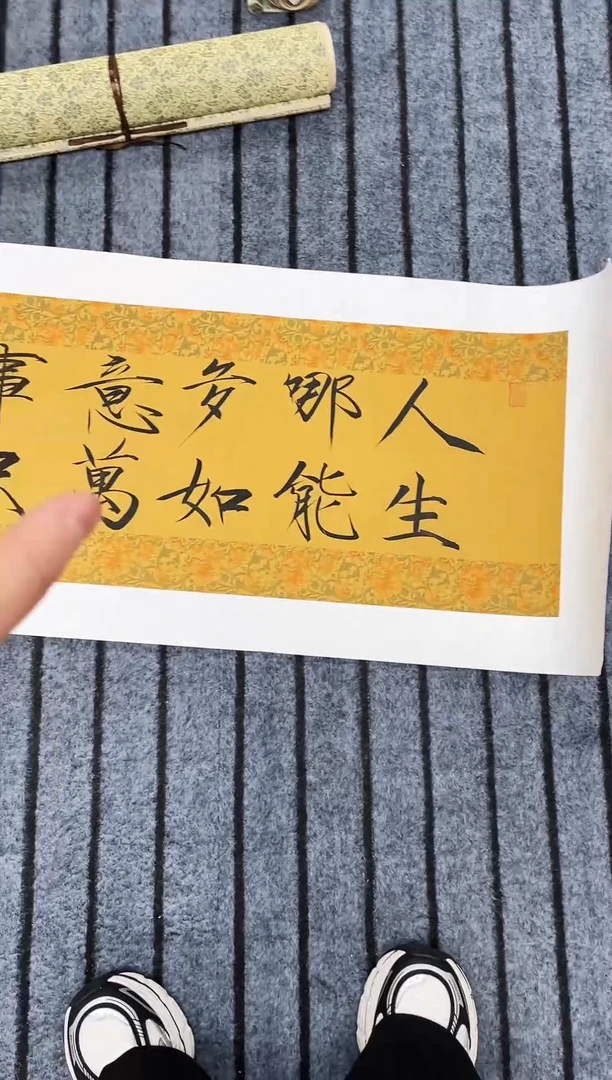 人生
哪能
多如
意萬
事